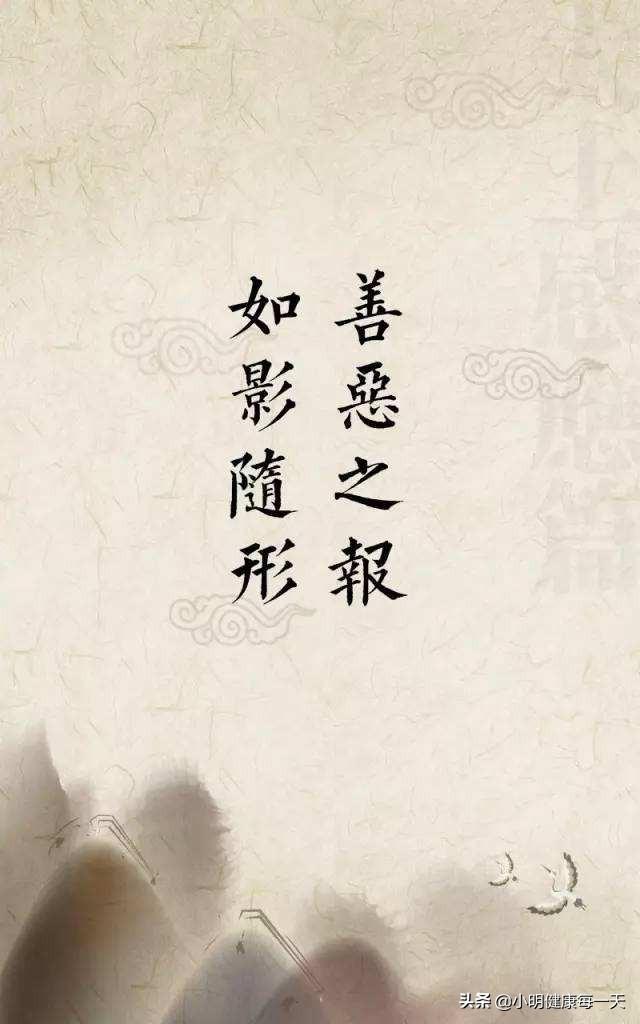 善惡之報
如影隨形
上感應篇
头条 @小明健康每一天